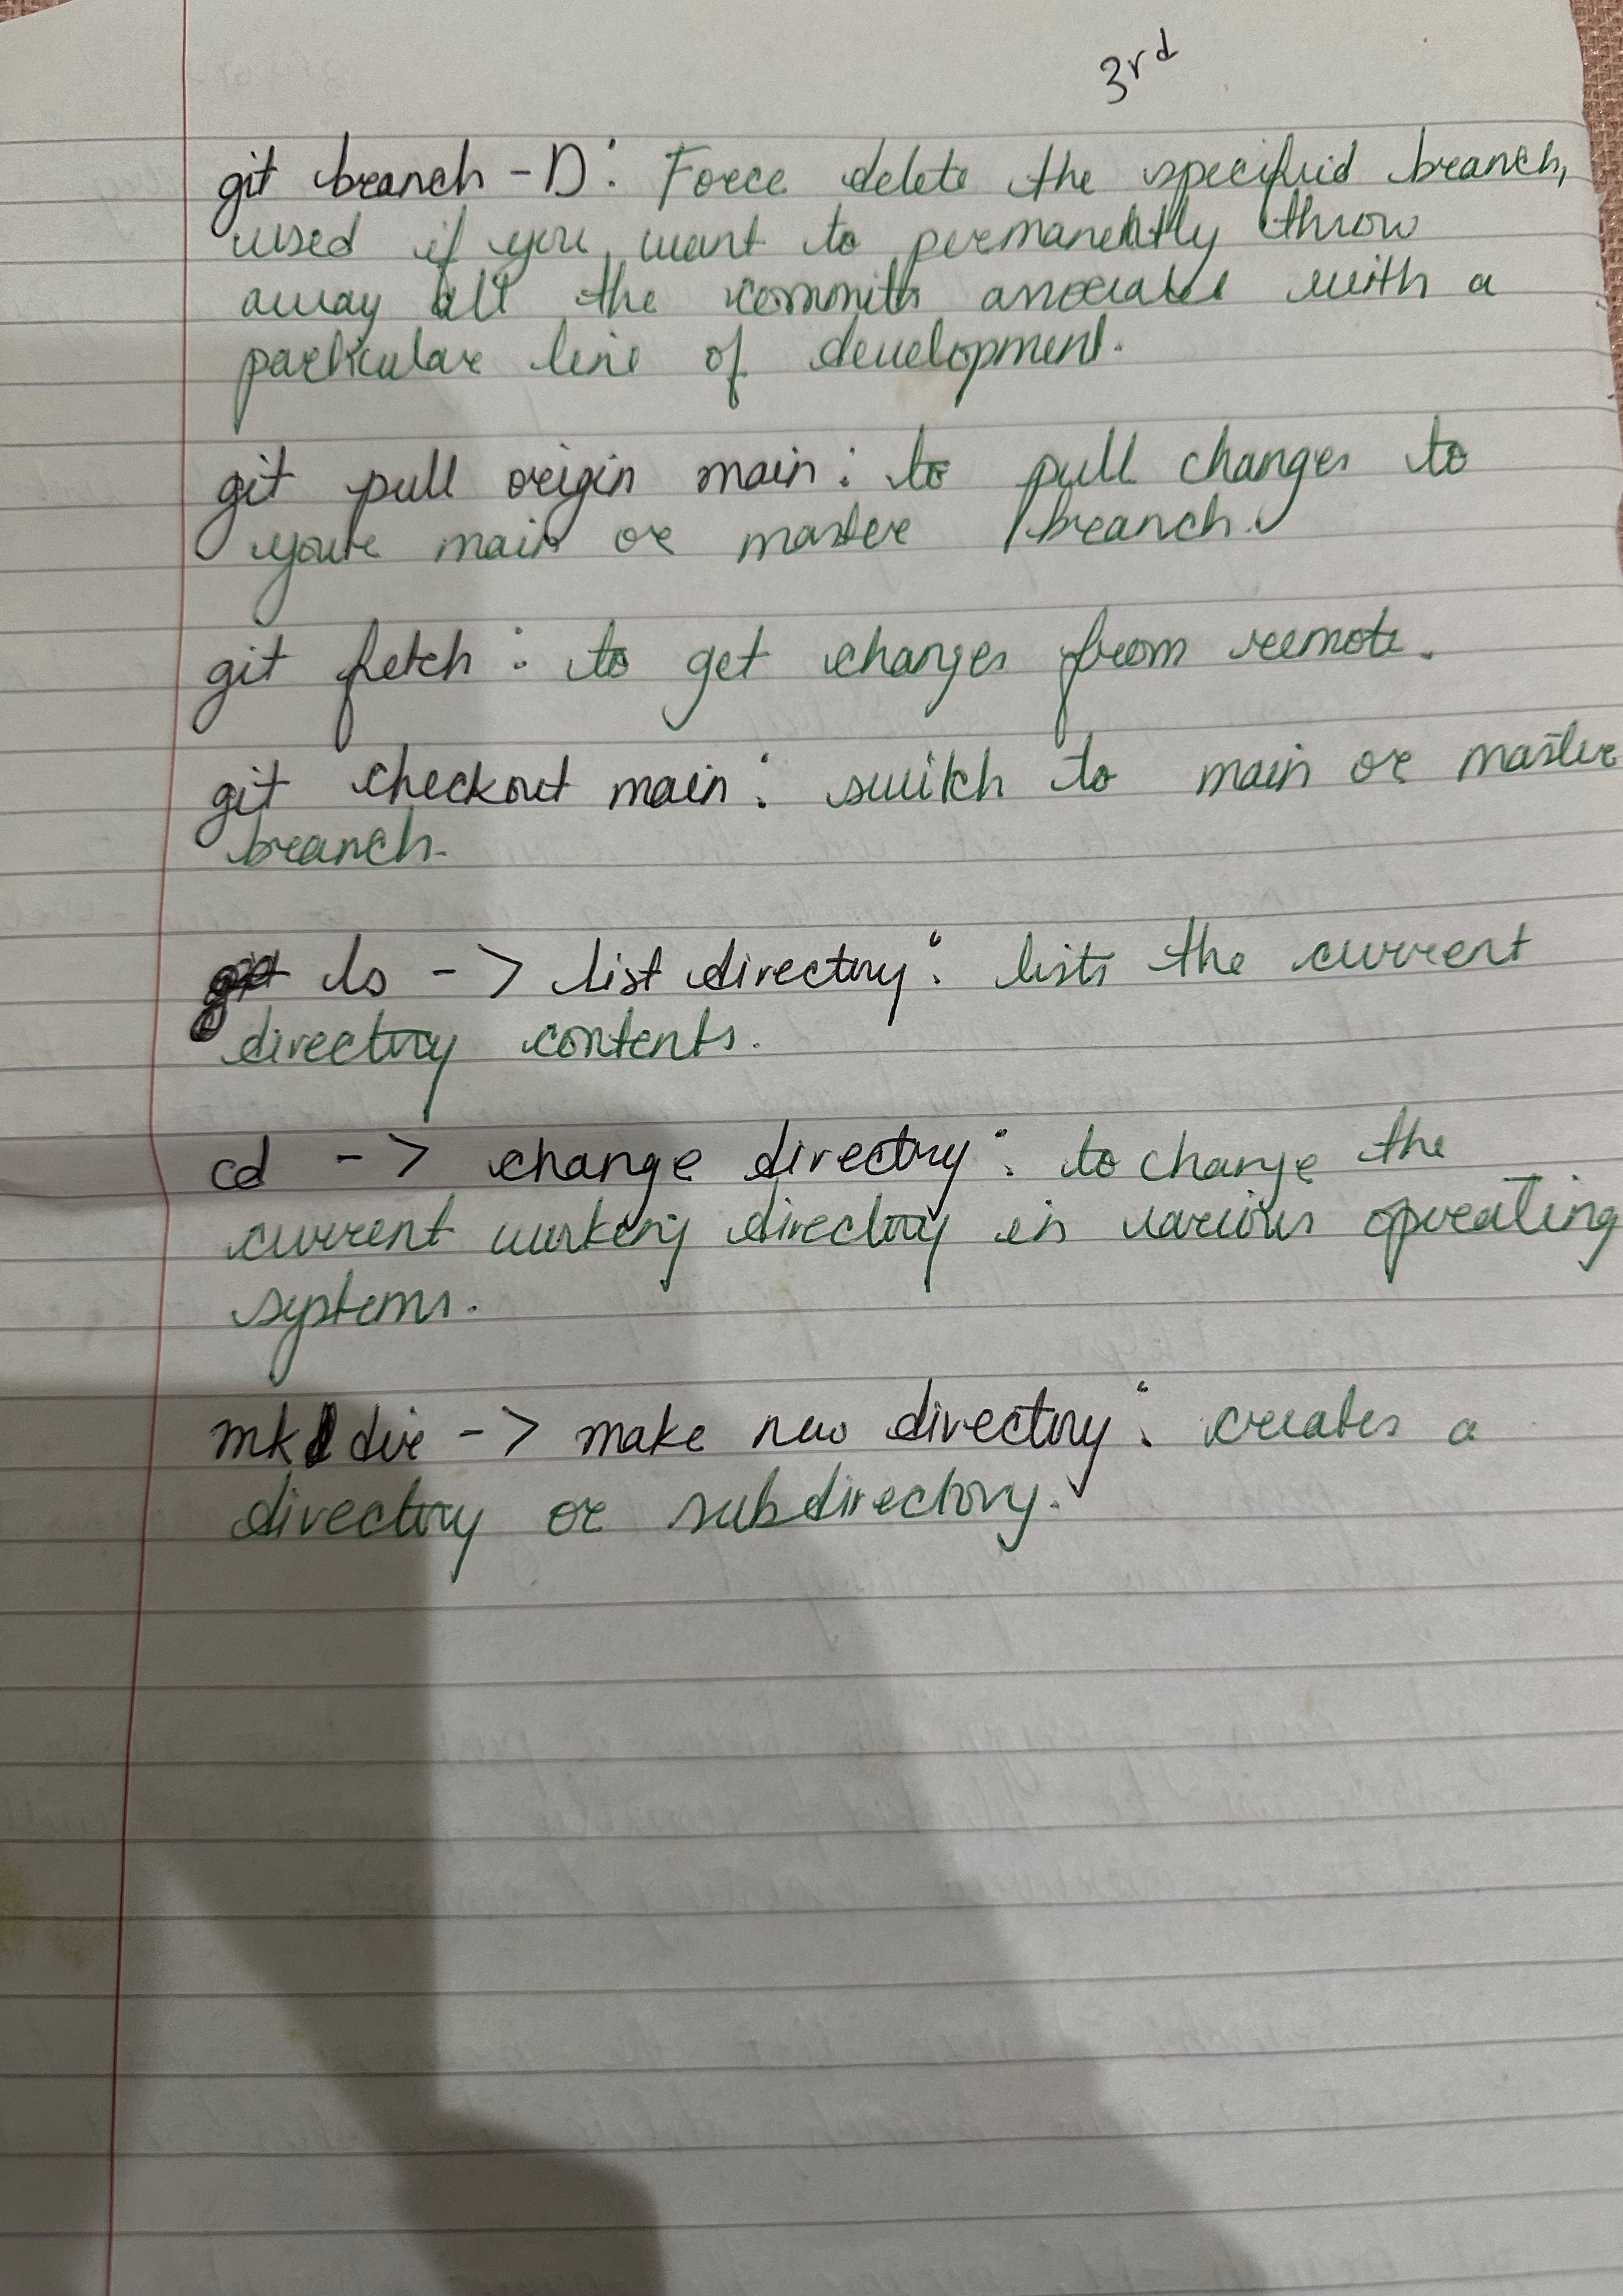 3rd
git branch -D: Force delete the specified branch,
used if you want to permanently throw
away all the commits associated with a
particular line of development.
git pull origin main: to pull changes to
your main or master branch.
git fetch: to get changes from remote.
git checkout main: switch to main or master
branch.
ls -> list directory: lists the current
directory contents.
cd -> change directry: to change the
current working directory in various operating
systems.
mkdir -> make new directory: creates a
directory or subdirectory.